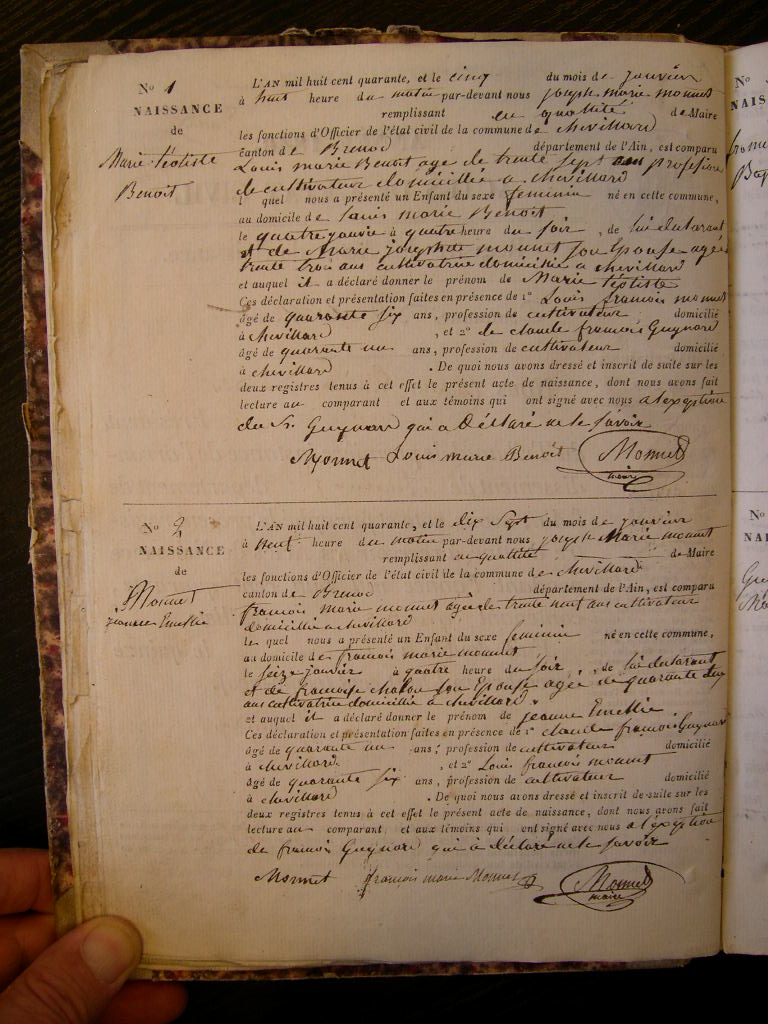 N.º 1
NAISSANCE
de
Marie téotiste
Benoit
L'AN mil huit cent quarante, et le cinq du mois de janvier
à huit heure du matin par-devant nous joseph marie monnet
remplissant en qualité de Maire
les fonctions d'Officier de l'état civil de la commune de chevillard
canton de Brenod département de l'Ain, est comparu
Louis marie Benoit age de trente sept ans profession
de cultivateur domicillié a chevillard
l quel nous a présenté un Enfant du sexe feminin né en cette commune,
au domicile de Louis marie Benoit
le quatre janvie à quatre heure du soir, de lui declarant
et de Marie josephte monnet son Epouse agée
trente trois ans cultivatrice domicilié a chevillard
et auquel il a déclaré donner le prénom de Marie téotiste
Ces déclaration et présentation faites en présence de 1º Louis francois monnet
âgé de quarante six ans, profession de cultivateur domicilié
à chevillard, et 2º de claude francois Guynard
âgé de quarante un ans, profession de cultivateur domicilié
à chevillard. De quoi nous avons dressé et inscrit de suite sur les
deux registres tenus à cet effet le présent acte de naissance, dont nous avons fait
lecture au comparant et aux témoins qui ont signé avec nous a lexeption
du Sr. Guynard qui a Déclaré ne le savoir
Monnet Louis marie Benoit Monnet
maire
N.º 2
NAISSANCE
de
Monnet
jeanne Emellie
L'AN mil huit cent quarante, et le dix Sept du mois de janvier
à neuf heure du matin par-devant nous joseph Marie monnet
remplissant en qualité de Maire
les fonctions d'Officier de l'état civil de la commune de chevillard
canton de Brenod département de l'Ain, est comparu
francois marie monnet agée de trente neuf ans cultivateur
domicillié a chevillard
le quel nous a présenté un Enfant du sexe feminin né en cette commune,
au domicile de francois marie monnet
le seize janvier à quatre heure du soir, de lui declarant
et de francoise chalon son Epouse agée de quarante deux
ans cultivatrice domicillié a chevillard.
et auquel il a déclaré donner le prénom de jeanne Emellie
Ces déclaration et présentation faites en présence de 1º claude francois Guynard
âgé de quarante un ans, profession de cultivateur domicilié
à chevillard, et 2º Louis francois monnet
âgé de quarante six ans, profession de cultivateur domicilié
à chevillard. De quoi nous avons dressé et inscrit de suite sur les
deux registres tenus à cet effet le présent acte de naissance, dont nous avons fait
lecture au comparant et aux témoins qui ont signé avec nous a l'exeption
de francois Guynard qui a déclaré ne le savoir
Monnet françois marie Monnet Monnet
maire